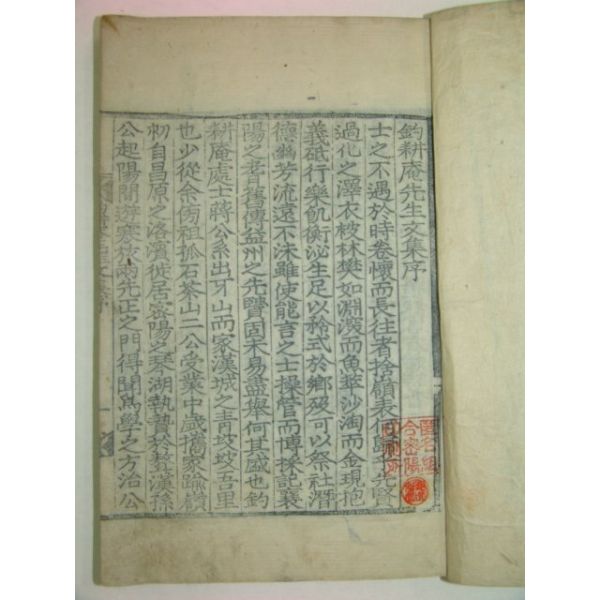 釣耕庵先生文集序
士之不遇於時卷懷而長往者捨嶺表何歸先賢
過化之澤衣被林樊如淵瀅而魚萃沙淘而金現抱
義砥行樂飢衡泌生足以矜式於鄉歿可以祭社潛
德幽芳流遠不沬雖使能言之士操管而博採記襄
陽之耆舊傳益州之先賢固未易盡擧何其盛也釣
耕庵處士蔣公系出牙山而家漢城之靑坡坡吾里
也少從余傍祖孤石茶山二公受業中歲携家踰嶺
初自昌原之洛濱徙居密陽之琴湖執贄於
公起陽間遊寒旅兩先正之門得聞爲學之方治公